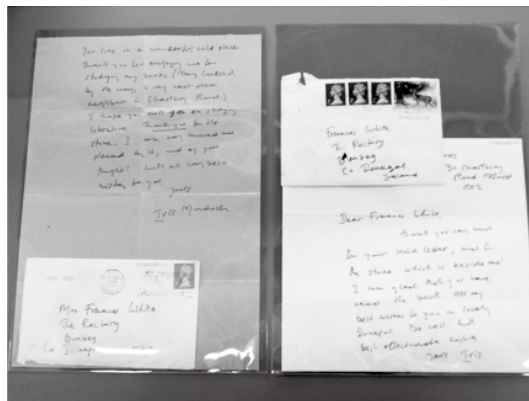 You live in a wonderful wild place
Thank you for
studying my books (Tony
by the way, is my next door
neighbour in Charlbury Road.)
I hope you will go on studying
literature. Thank you for the
stone. I am very moved and
pleased by it, and by your
thought! With all very best
wishes to you,
Yours
Iris Murdoch
Mrs Frances White
The Rectory
Bunbeg
Co Donegal
Frances White
The Rectory
Bunbeg
Co Donegal
Ireland
30 Charlbury
Road Oxford
OX2
Dear Frances White,
thank you very much
for your kind letter, and for
the stone which is beside me!
I am glad that you have
the best. All my
best wishes to you in lovely
Donegal. Be well. With
best affectionate wishes
yours Iris